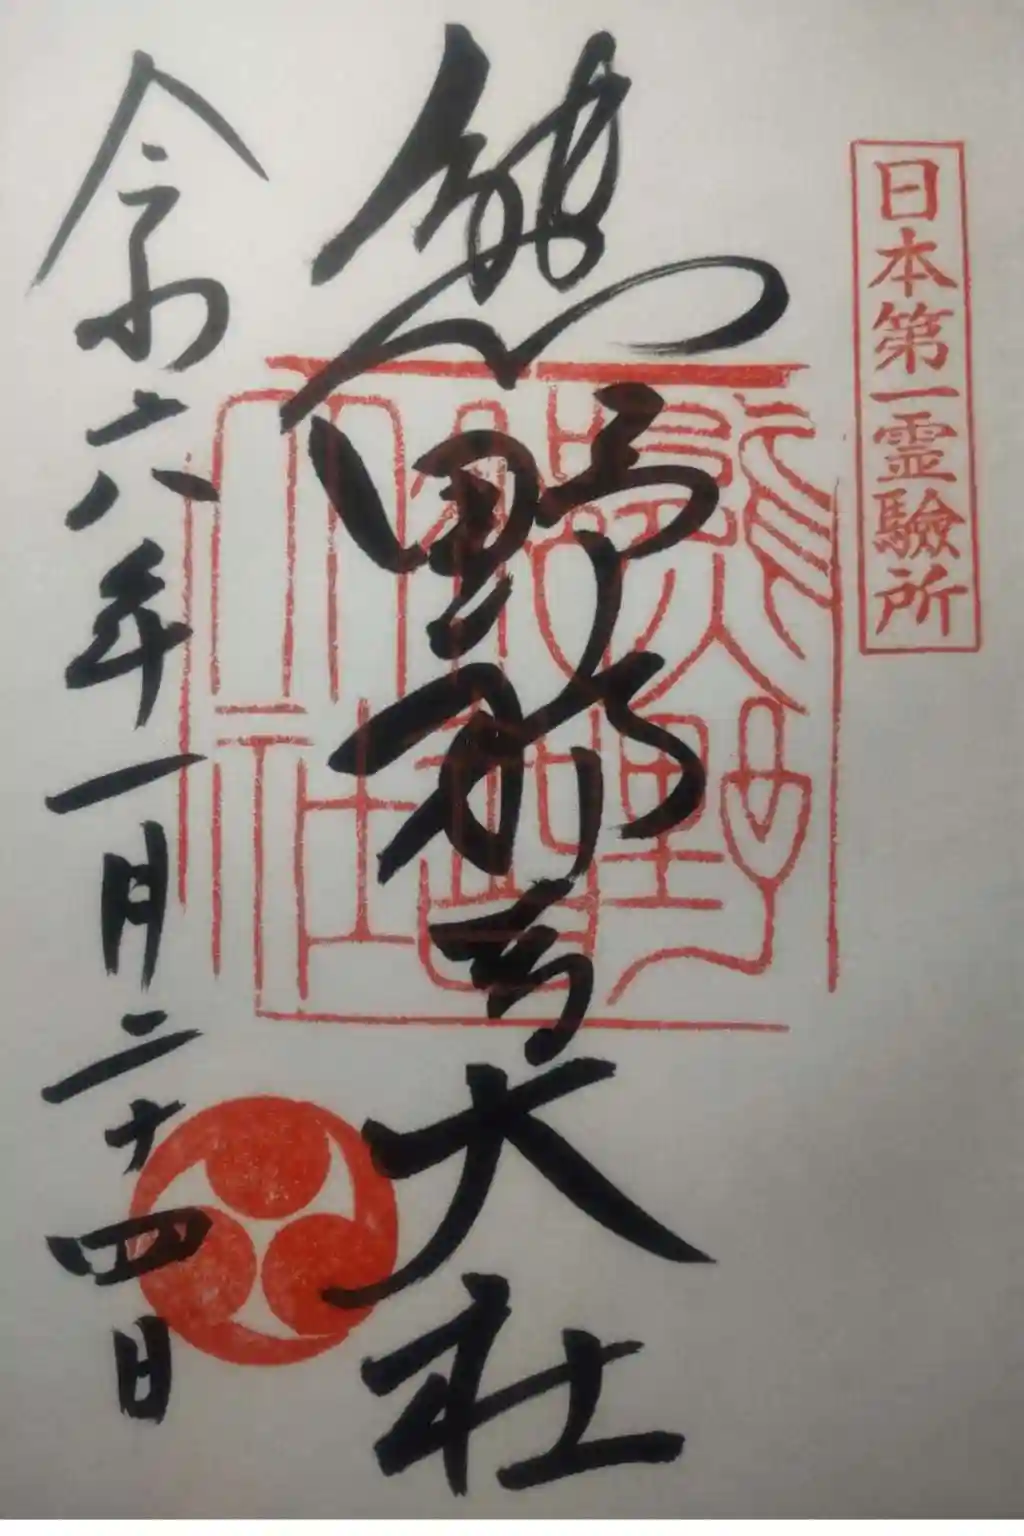 日本第一霊驗所
熊野那智大社
熊野
那智
大社
令和六年一月二十四日